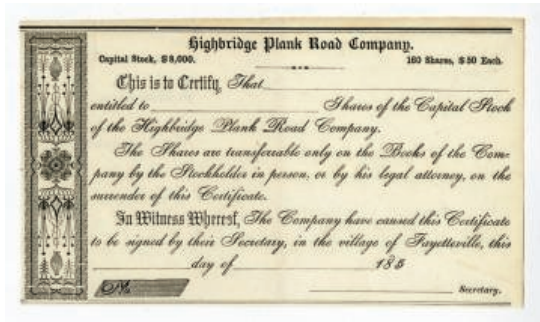 Highbridge Plank Road Company.
Capital Stock, $8,000. 160 Shares, $50 Each.
This is to Certify, That
entitled to Shares of the Capital Stock
of the Highbridge Plank Road Company.
The Shares are transferrable only on the Books of the Com-
pany by the Stockholder in person, or by his legal attorney, on the
surrender of this Certificate.
In Witness Whereof, The Company have caused this Certificate
to be signed by their Secretary, in the village of Fayetteville, this
day of 185
No.
Secretary.